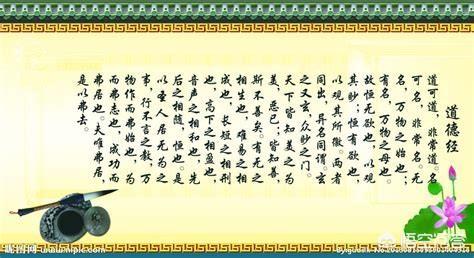 道德经
道可道，非常道。名
可名，非常名。无
名，万物之始也；
有名，万物之母也。
故恒无欲也，以观
其妙；恒有欲也，
以观其所徼。两者
同出，异名同谓。玄
之又玄，众妙之门。
天下皆知美之为
美，恶已；皆知善，
斯不善矣。有无之
相生也，难易之相
成也，长短之相刑
也，高下之相盈也，
音声之相和也，先
后之相随，恒也。是
以圣人居无为之
事，行不言之教，万
物作而弗始也，为
而弗志也，成功而
弗居也。夫唯弗居，
是以弗去。
昵图网 www.nipic.com
悟空问答